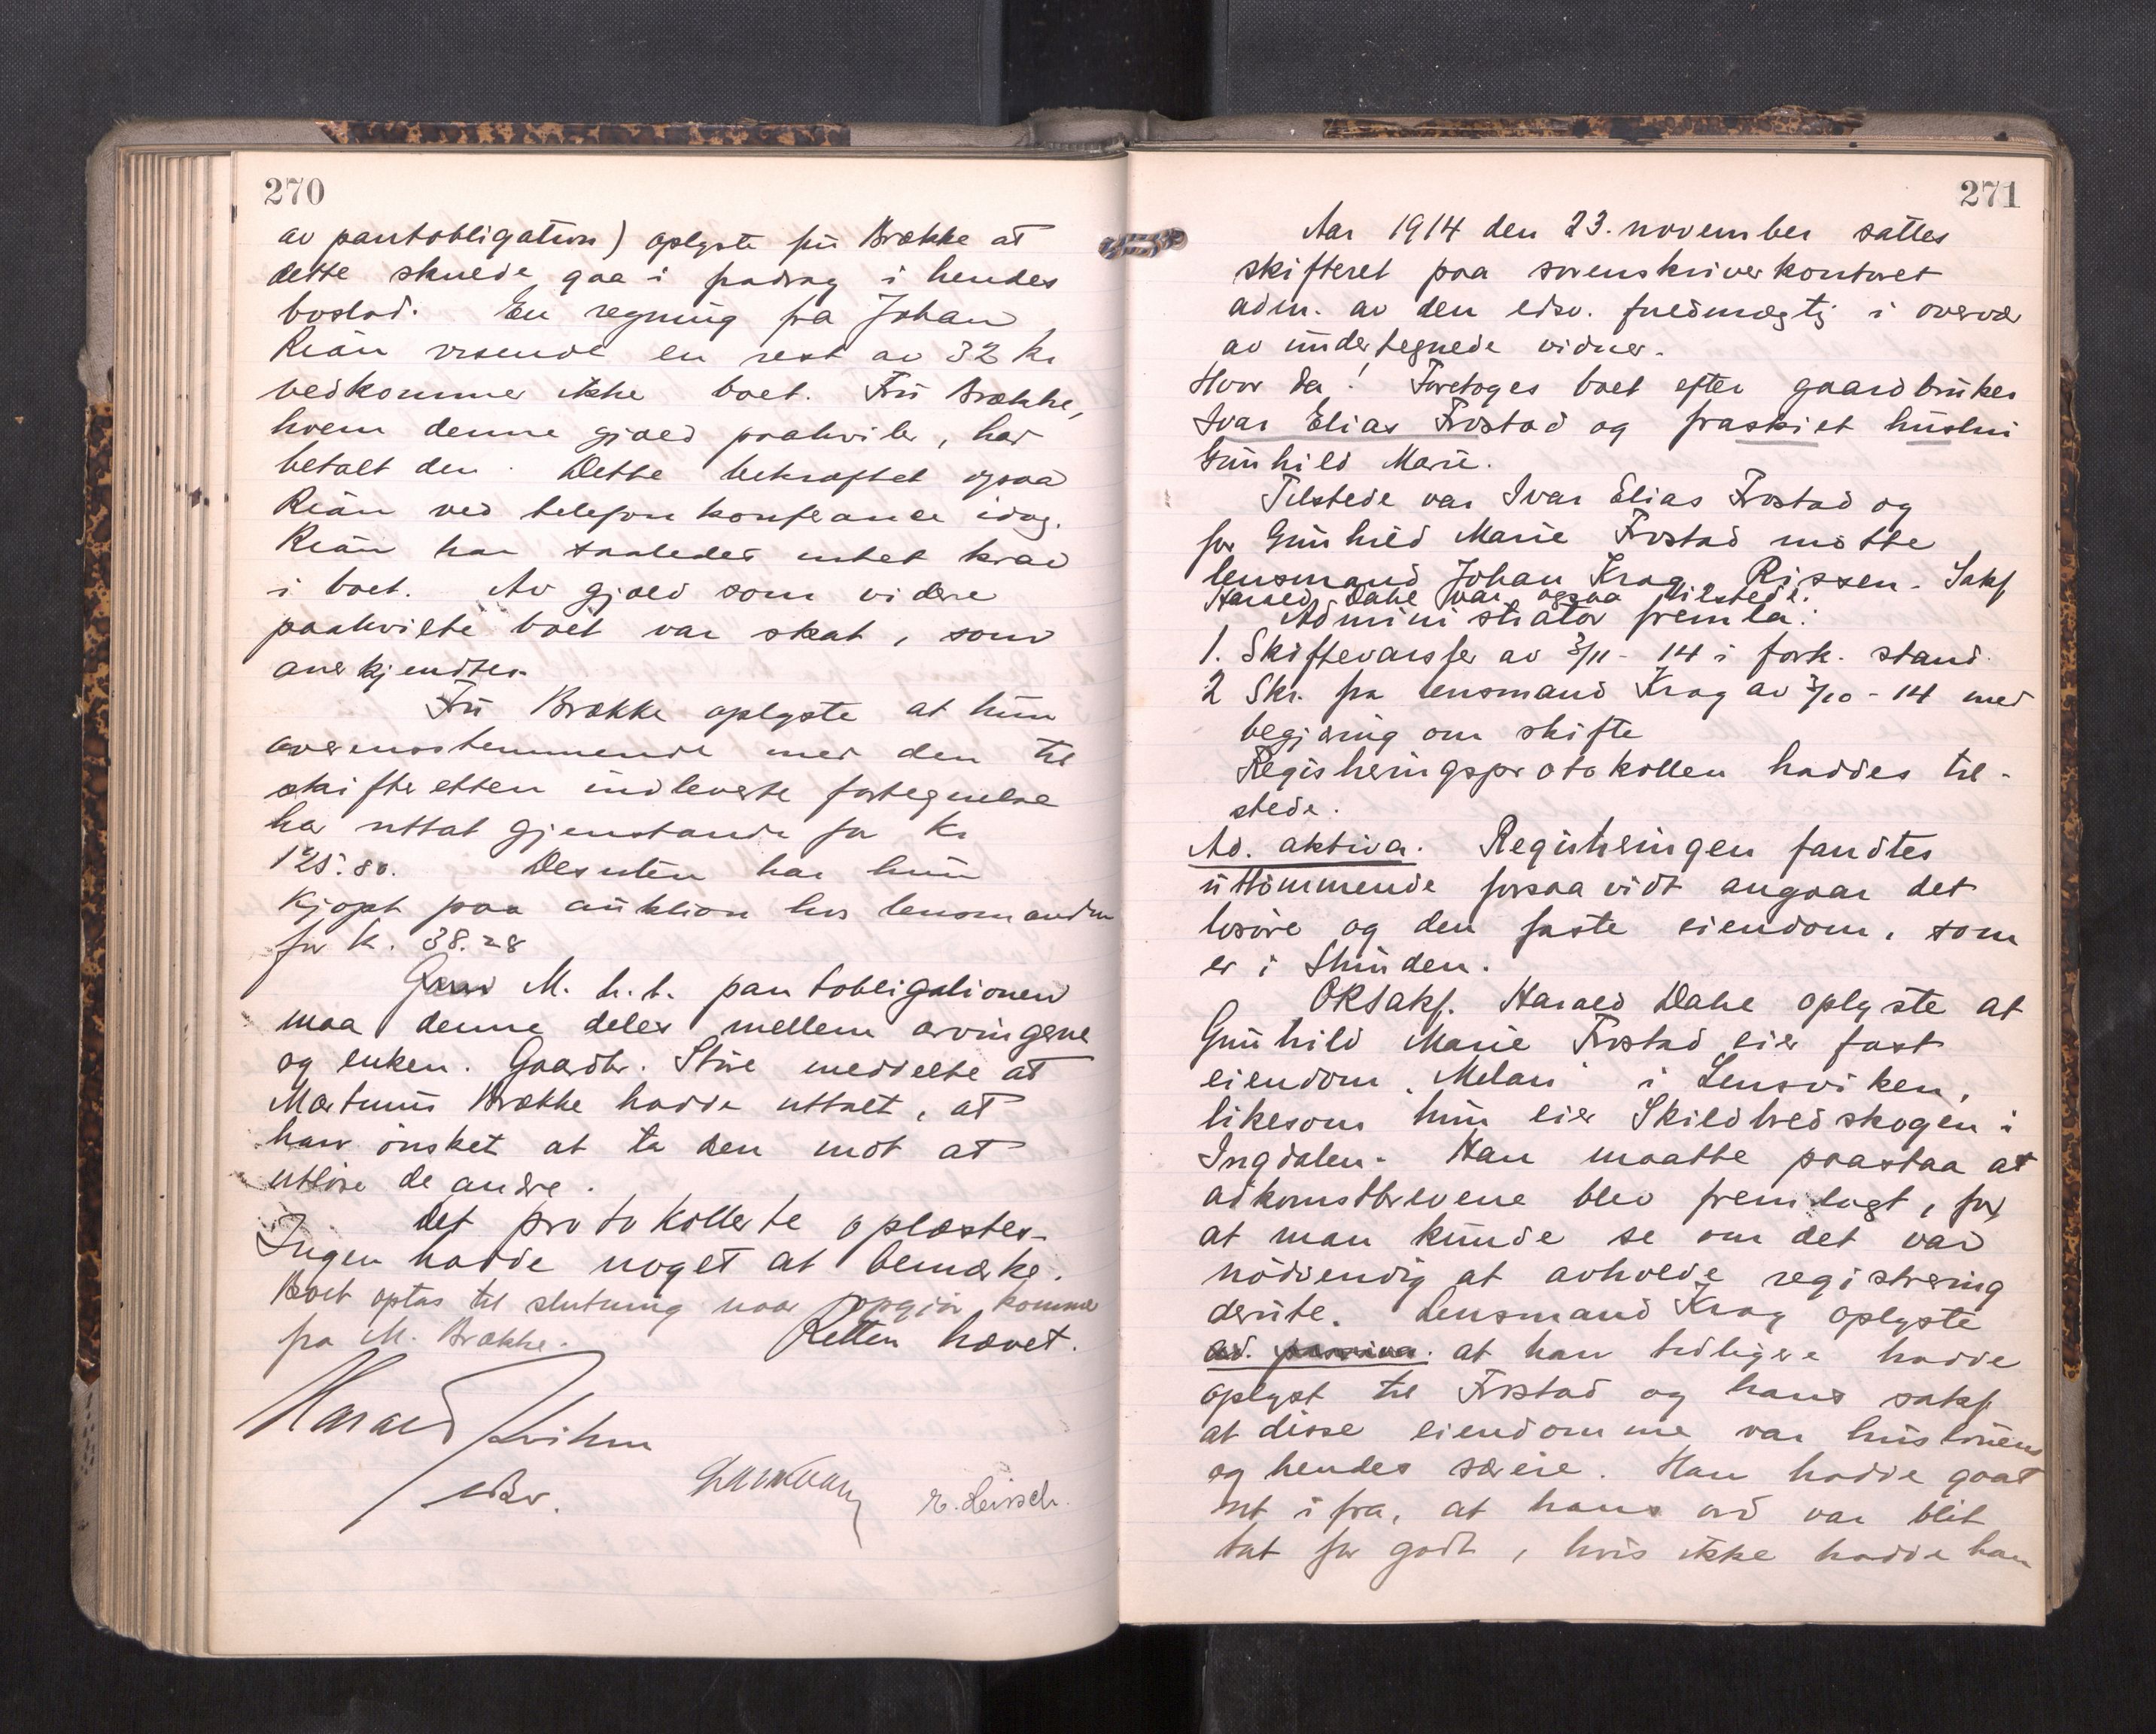 270
av pantobligation) oplyste fru Brække at
dette skulde gaa i fradrag i hendes
boslod. En regning fra Johan
Rian visende en rest av 32 kr
vedkommer ikke boet. Fru Brække,
hvem denne gjæld paahviler, har
betalt den. Dette bekræftet ogsaa
Rian ved telefonkonferance idag.
Rian har saaledes intet krav
i boet. Av gjæld som videre
paahvilte boet var skat, som
anerkjendtes.
Fru Brække oplyste at hun
overensstemmende med den til
skifteretten indleverte fortegnelse
har uttat gjenstande for kr
125.80. Desuten har hun
kjøpt paa auktion hos lensmanden
for k. 38.28
M. h. t. pantobligationen
maa denne deles mellem arvingerne
og enken. Gaardbr. Støre meddelte at
Martinus Brække hadde uttalt, at
han ønsket at ta den mot at
utløse de andre.
Det protokollerte oplæstes.
Ingen hadde noget at bemærke.
Boet optas til slutning naar opgjør kommer
fra M. Brække. Retten hævet.
Harald
edsv.
271
Aar 1914 den 23. november sattes
skifteret paa sorenskriverkontoret
adm. av den edsv. fuldmægtig i overvær
av undertegnede vidner.
Hvor da! Foretoges boet efter gaardbruker
Ivar Elias Frostad og fraskilt hustru
Gunhild Marie.
Tilstede var Ivar Elias Frostad og
for Gunhild Marie Frostad møtte
lensmand Johan Krog, Rissen. Sakf.
Harald Dahl var ogsaa tilstede.
Administrator fremla:
1. Skiftevarsler av 3/11 - 14 i fork. stand
2 Skr. fra lensmand Krog av 3/10 - 14 med
begjæring om skifte
Registreringsprotokollen haddes til-
stede.
Ad. aktiva. Registreringen fandtes
uttømmende forsaavidt angaar det
løsøre og den faste eiendom, som
er i Stunden.
ORSakf. Harald Dahl oplyste at
Gunhild Marie Frostad eier fast
eiendom "Melan" i Lensviken,
likesom hun eier Skildbredskogen i
Ingdalen. Han maatte paastaa at
adkomstbrevene blev fremlagt, for
at man kunde se om det var
nødvendig at avholde registrering
derute. Lensmand Krog oplyste
ad. passiva. at han tidligere hadde
oplyst til Frostad og hans sakf.
at disse eiendomme var hustruens
og hendes særeie. Han hadde gaat
ut ifra, at hans ord var blit
tat for godt, hvis ikke hadde han